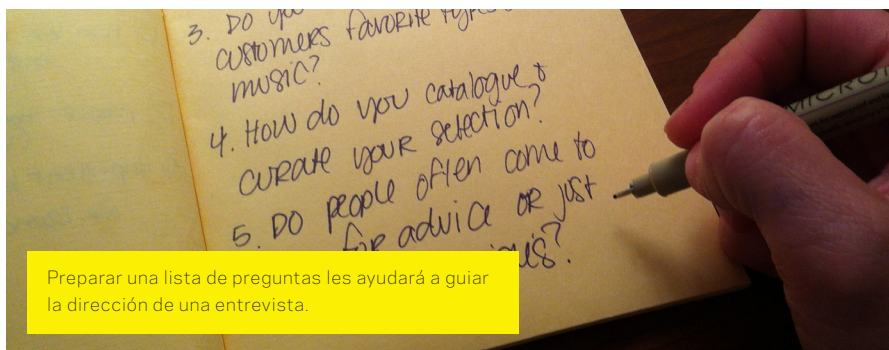 3. DO you
customers favorite
music?
4. How do you catalogue &
curate your selection?
5. DO people often come to
for advice OR just
Preparar una lista de preguntas les ayudará a guiar
la dirección de una entrevista.
MICRO